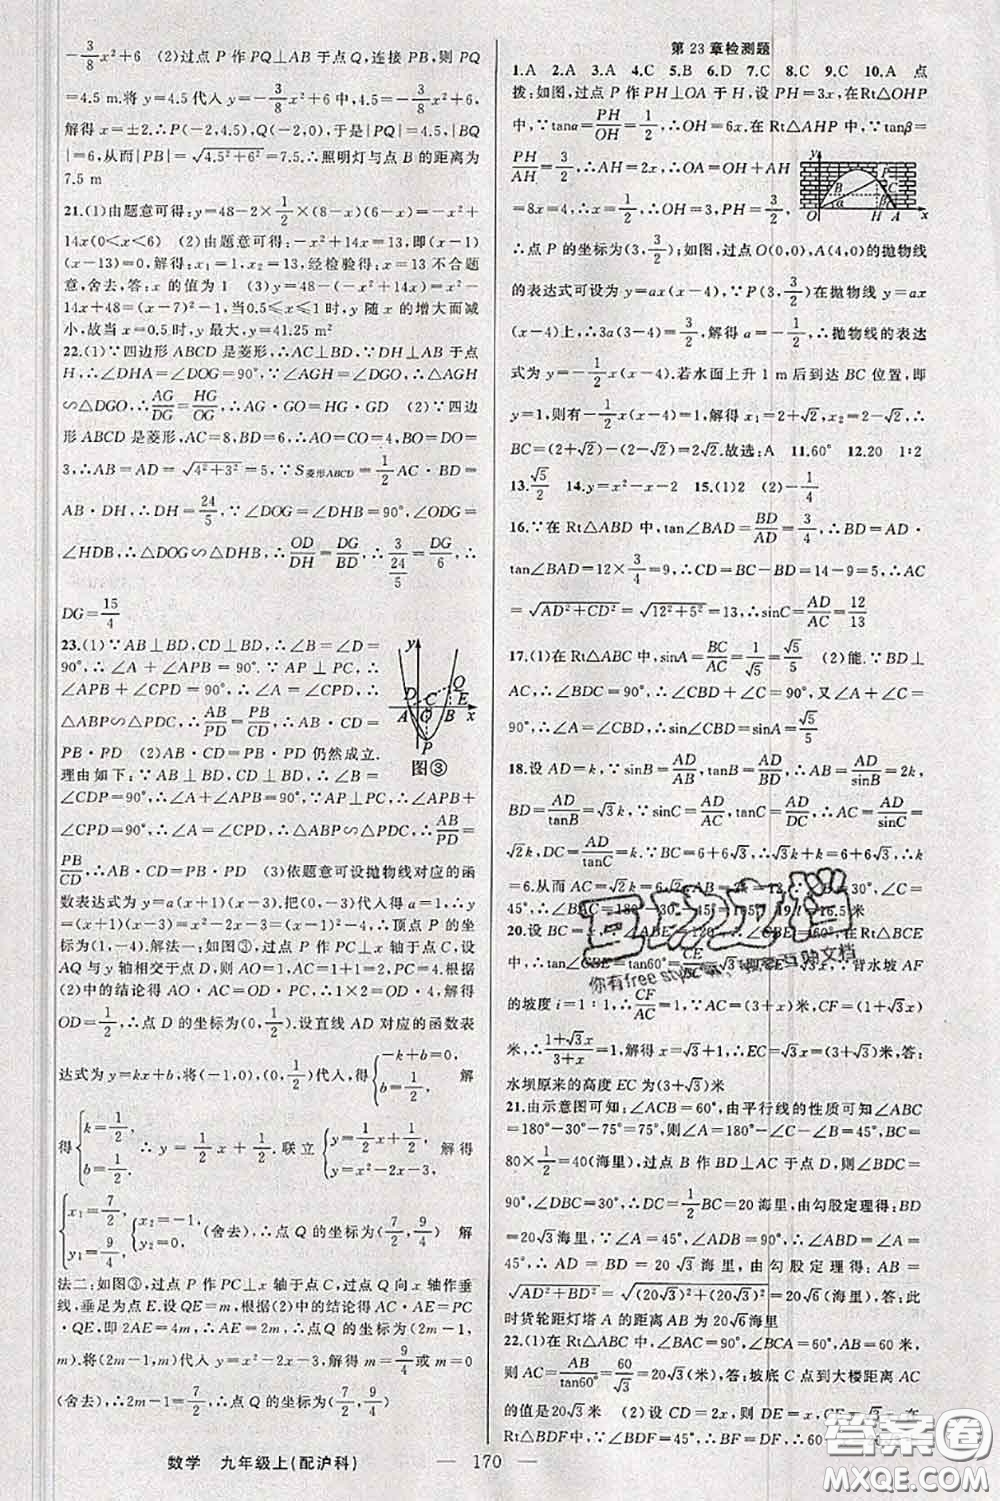 -3/8x²+6 (2)过点 P 作 PQ⊥AB 于点 Q,连接 PB,则 PQ
=4.5 m.将 y=4.5 代入 y=-3/8x²+6 中,4.5=-3/8x²+6,
解得 x=±2.∴P(-2,4.5),Q(-2,0),于是|PQ|=4.5,|BQ
|=6,从而|PB|=√(4.5²+6²)=7.5.∴照明灯与点 B 的距离为
7.5 m
21.(1)由题意可得:y=48-2×1/2×(8-x)(6-x)=-x²+
14x(0<x<6) (2)由题意可得:-x²+14x=13,即(x-1)
(x-13)=0,解得:x₁=1,x₂=13,经检验得:x=13 不合题
意,舍去,答:x 的值为 1 (3)y=48-(-x²+14x)=x²-
14x+48=(x-7)²-1,当0.5≤x≤1 时,y 随 x 的增大而减
小,故当 x=0.5 时,y最大=41.25 m²
22.(1)∵四边形 ABCD 是菱形,∴AC⊥BD,∵DH⊥AB 于点
H,∴∠DHA=∠DOG=90°,∵∠AGH=∠DGO,∴△AGH
∽△DGO,∴AG/DG=HG/OG,∴AG·GO=HG·GD (2)∵四边
形 ABCD 是菱形,AC=8,BD=6,∴AO=CO=4,BO=DO=
3,∴AB=AD=√(4²+3²)=5,∵S菱形ABCD=1/2AC·BD=
AB·DH,∴DH=24/5,∵∠DOG=∠DHB=90°,∠ODG=
∠HDB,∴△DOG∽△DHB,∴OD/DH=DG/BD,∴3/(24/5)=DG/6,∴
DG=15/4
23.(1)∵AB⊥BD,CD⊥BD,∴∠B=∠D=
90°,∴∠A+∠APB=90°,∵AP⊥PC,∴∠
APB+∠CPD=90°,∴∠A=∠CPD,∴
△ABP∽△PDC,∴AB/PD=PB/CD,∴AB·CD=
PB·PD (2)AB·CD=PB·PD 仍然成立.
理由如下:∵AB⊥BD,CD⊥BD,∴∠B=
∠CDP=90°,∴∠A+∠APB=90°,∵AP⊥PC,∴∠APB+
∠CPD=90°,∴∠A=∠CPD,∴△ABP∽△PDC,∴AB/PD=
PB/CD,∴AB·CD=PB·PD (3)依题意可设抛物线对应的函
数表达式为 y=a(x+1)(x-3).把(0,-3)代入得 a=1,∴y=
(x+1)(x-3)=x²-2x-3=(x-1)²-4,∴顶点 P 的坐
标为(1,-4).解法一:如图③,过点 P 作 PC⊥x 轴于点 C,设
AQ 与 y 轴相交于点 D,则 AO=1,AC=1+1=2,PC=4.根据
(2)中的结论得 AO·AC=OD·PC,∴1×2=OD×4,解得
OD=1/2,∴点 D 的坐标为(0,1/2).设直线 AD 对应的函数表
达式为 y=kx+b,将(-1,0),(0,1/2)代入得,{-k+b=0, b=1/2, 解
得{k=1/2, b=1/2, ∴y=1/2x+1/2.联立{y=1/2x+1/2, y=x²-2x-3, 解得
{x₁=7/2, y₁=9/4, {x₂=-1, y₂=0, (舍去),∴点 Q 的坐标为(7/2,9/4) 解
法二:如图③,过点 P 作 PC⊥x 轴于点 C,过点 Q 向 x 轴作垂
线,垂足为点 E.设 QE=m,根据(2)中的结论得 AC·AE=PC
·QE,即 2AE=4m,∴AE=2m,∴点 Q 的坐标为(2m-1,
m).将(2m-1,m)代入 y=x²-2x-3,解得 m=9/4或 m=0
(舍去),∴2m-1=7/2,∴点 Q 的坐标为(7/2,9/4)
y
D
C
Q
A
O
B
E
x
P
图③
第 23 章检测题
1.A 2.A 3.A 4.C 5.B 6.D 7.C 8.C 9.C 10.A 点
拨:如图,过点 P 作 PH⊥OA 于 H,设 PH=3x,在Rt△OHP
中,∵tanα=PH/OH=1/2,∴OH=6x.在Rt△AHP 中,∵tanβ=
PH/AH=3/2,∴AH=2x,∴OA=OH+AH
=8x=4,∴x=1/2,∴OH=3,PH=3/2,
∴点 P 的坐标为(3,3/2);如图,过点 O(0,0),A(4,0)的抛物线
的表达式可设为 y=ax(x-4),∵P(3,3/2)在抛物线 y=ax
(x-4)上,∴3a(3-4)=3/2,解得 a=-1/2,∴抛物线的表达
式为 y=-1/2x(x-4).若水面上升 1 m 后到达 BC 位置,即
y=1,则有-1/2x(x-4)=1,解得 x₁=2+√2,x₂=2-√2,∴
BC=(2+√2)-(2-√2)=2√2.故选:A 11.60° 12.20 1∶2
13.√5/2 14.y=x²-x-2 15.(1)2 (2)-1/4
16.∵在 Rt△ABD 中,tan∠BAD=BD/AD=3/4,∴BD=AD·
tan∠BAD=12×3/4=9,∴CD=BC-BD=14-9=5,∴AC
=√(AD²+CD²)=√(12²+5²)=13,∴sinC=AD/AC=12/13
17.(1)在Rt△ABC 中,sinA=BC/AC=1/√5=√5/5 (2)能.∵BD⊥
AC,∴∠BDC=90°,∴∠C+∠CBD=90°,又∠A+∠C=
90°,∴∠A=∠CBD,∴sin∠CBD=sinA=√5/5
18.设 AD=k,∵sinB=AD/AB,tanB=AD/BD,∴AB=AD/sinB=2k,
BD=AD/tanB=√3k,∵sinC=AD/AC,tanC=AD/DC,∴AC=AD/sinC=
√2k,DC=AD/tanC=k.∵BC=6+6√3,∴√3k+k=6+6√3,∴k
=6.从而 AC=√2k=6√2,AB=2k=12
20.设 BC=x
的坡度 i=1∶1,∴CF/AC=1,∵AC=(3+x)米,CF=(1+√3x)
米,∴(1+√3x)/(3+x)=1,解得 x=√3+1,∴EC=√3x=3+√3,答:
水坝原来的高度 EC 为(3+√3)米
21.由示意图可知:∠ACB=60°,由平行线的性质可知∠ABC
=180°-30°-75°=75°,则∠A=180°-∠C-∠ABC=45°,BC=
80×1/2=40(海里),过点 B 作 BD⊥AC 于点 D,则∠BDC=
90°,∠DBC=30°,∴CD=1/2BC=20 海里,由勾股定理得:BD
=20√3海里,∵∠A=45°,∠ADB=90°,∴∠ABD=45°=
∠A,∴AD=BD=20√3海里,由勾股定理得:AB=
√(AD²+BD²)=√((20√3)²+(20√3)²)=20√6(海里).答:此
时货轮距灯塔 A 的距离 AB 为 20√6海里
22.(1)在 Rt△ABC 中,∠BAC=90°,∠BCA=60°,AB=60 米,
则 AC=AB/tan60°=60/√3=20√3(米),答:坡底 C 点到大楼距离 AC
的值是20√3米 (2)设 CD=2x,则 DE=x,CE=√3x,在
Rt△BDF 中,∵∠BDF=45°,∴BF=DF,∴60-
y
P
B
C
β
α
O
H
A
x
互助文档
你有free style 互助文档
数学 九年级上(配沪科) — 170 —
答案圈
MXQE.COM